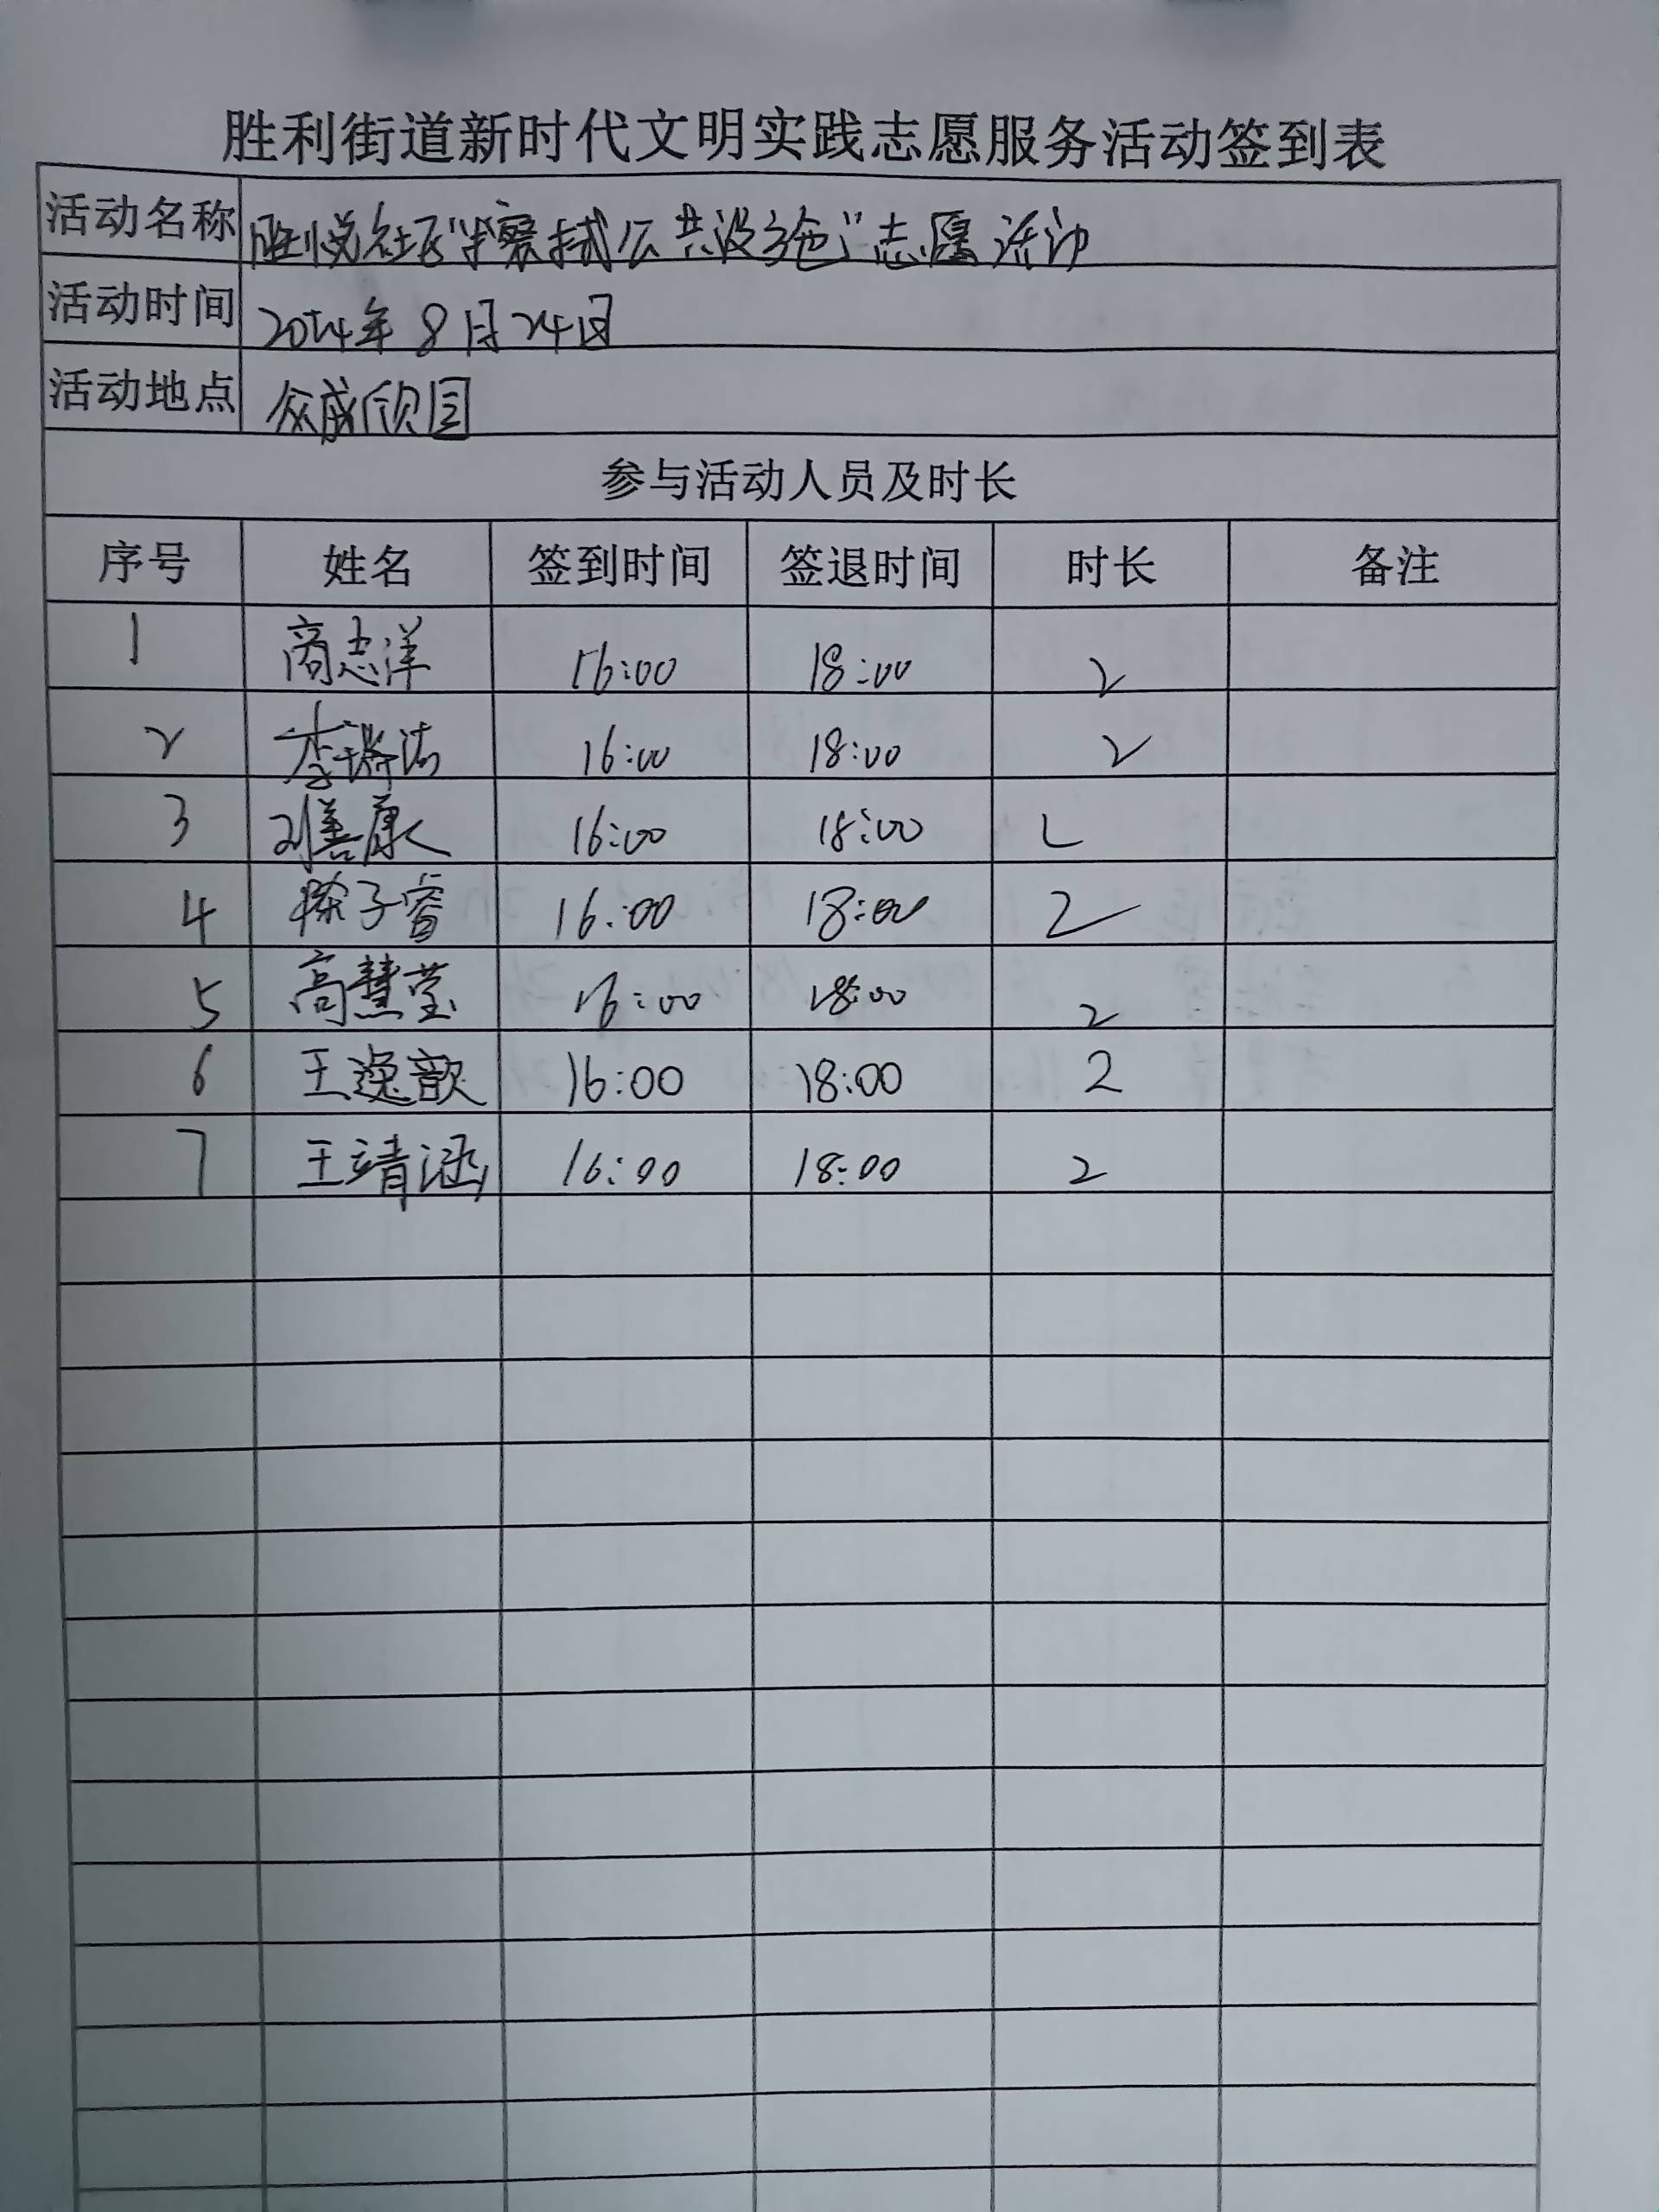 胜利街道新时代文明实践志愿服务活动签到表
活动名称 胜悦社区“擦拭公共设施”志愿活动
活动时间 2024年8月24日
活动地点 众成欣园
参与活动人员及时长
序号 姓名 签到时间 签退时间 时长 备注
1 商志洋 16:00 18:00 2
2 李瑞洁 16:00 18:00 2
3 刘善康 16:00 18:00 2
4 徐子睿 16:00 18:00 2
5 高慧莹 16:00 18:00 2
6 王逸歆 16:00 18:00 2
7 王靖涵 16:00 18:00 2